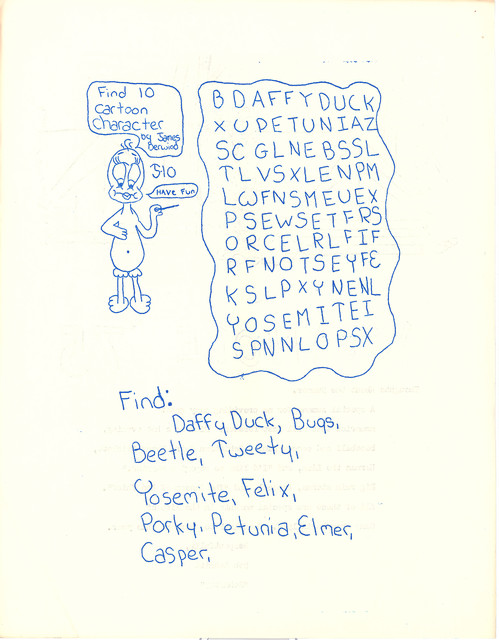 Find 10
Cartoon
Character
by James
Berwind
510
HAVE FUN
B D A F F Y D U C K
X U P E T U N I A Z
S C G L N E B S S L
T L V S X L E N P M
L W F N S M E U E X
P S E W S E T F R S
O R C E L R L F I F
R F N O T S E Y F E
K S L P X Y N E N L
Y O S E M I T E I
S P N N L O P S X
Find:
Daffy Duck, Bugs,
Beetle, Tweety,
Yosemite, Felix,
Porky, Petunia, Elmer,
Casper,